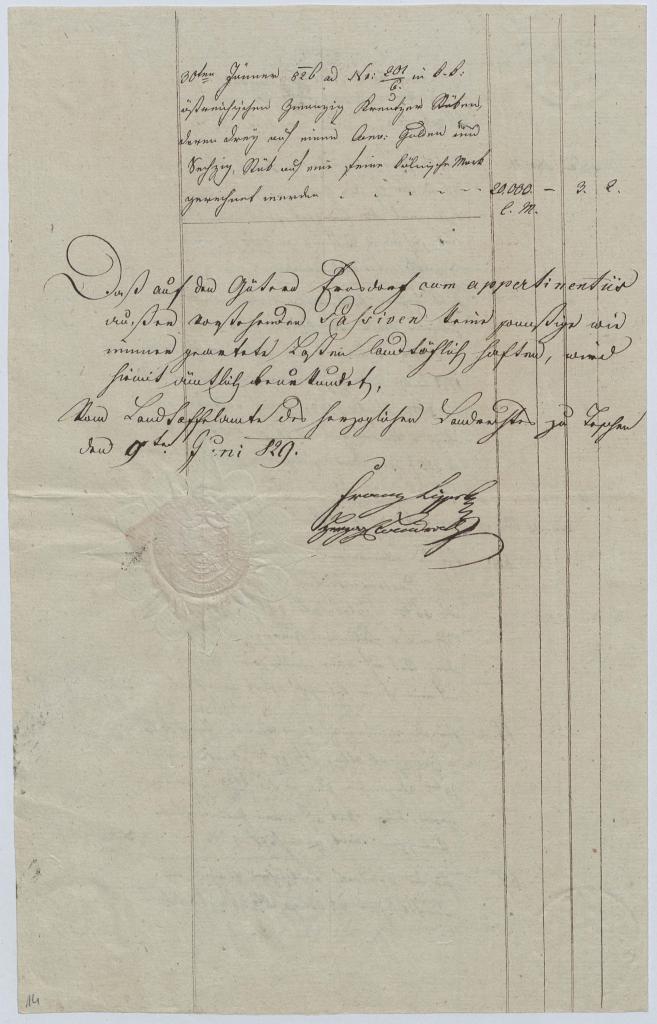 30ten Jänner 826 ad No: 201/6. in k. k:
östreichischen Zwanzig Kreutzer Stüken,
deren drey auf einen Conv: Gulden und
Sechzig Stük auf eine feine kölnische Mark
gerechnet werden . . . . . 20,000 — 3. C.
C. M.
Daß auf den Gütern Ernsdorf cum appertinentiis
außer vorstehenden Passiven keine sonstige wie
immer geartete Lasten landtäflich haften, wird
hiemit ämtlich beurkundet,
Vom Landtaffelamte des herzoglichen Landrechtes zu Teschen
den 9ten Juni 829.
Franz
14